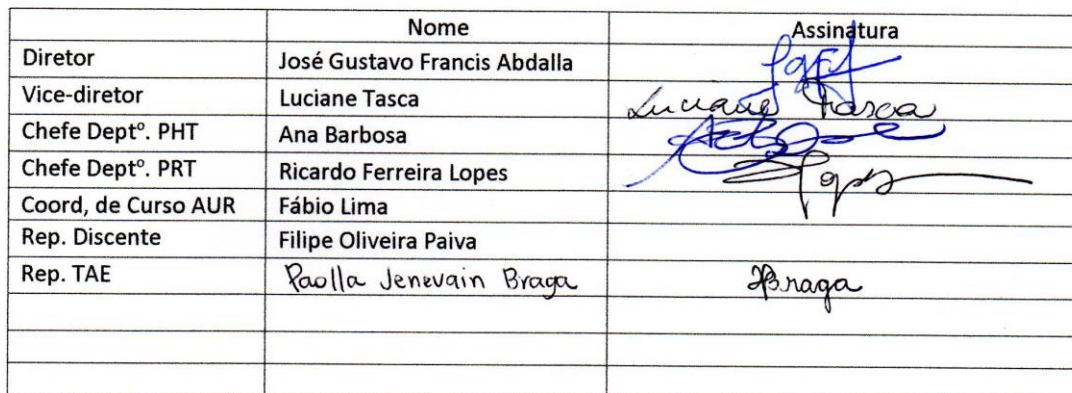 Nome Assinatura
Diretor José Gustavo Francis Abdalla
Vice-diretor Luciane Tasca Luciane Tasca
Chefe Deptº. PHT Ana Barbosa
Chefe Deptº. PRT Ricardo Ferreira Lopes Lopes
Coord, de Curso AUR Fábio Lima
Rep. Discente Filipe Oliveira Paiva
Rep. TAE Paolla Jenevain Braga PBraga